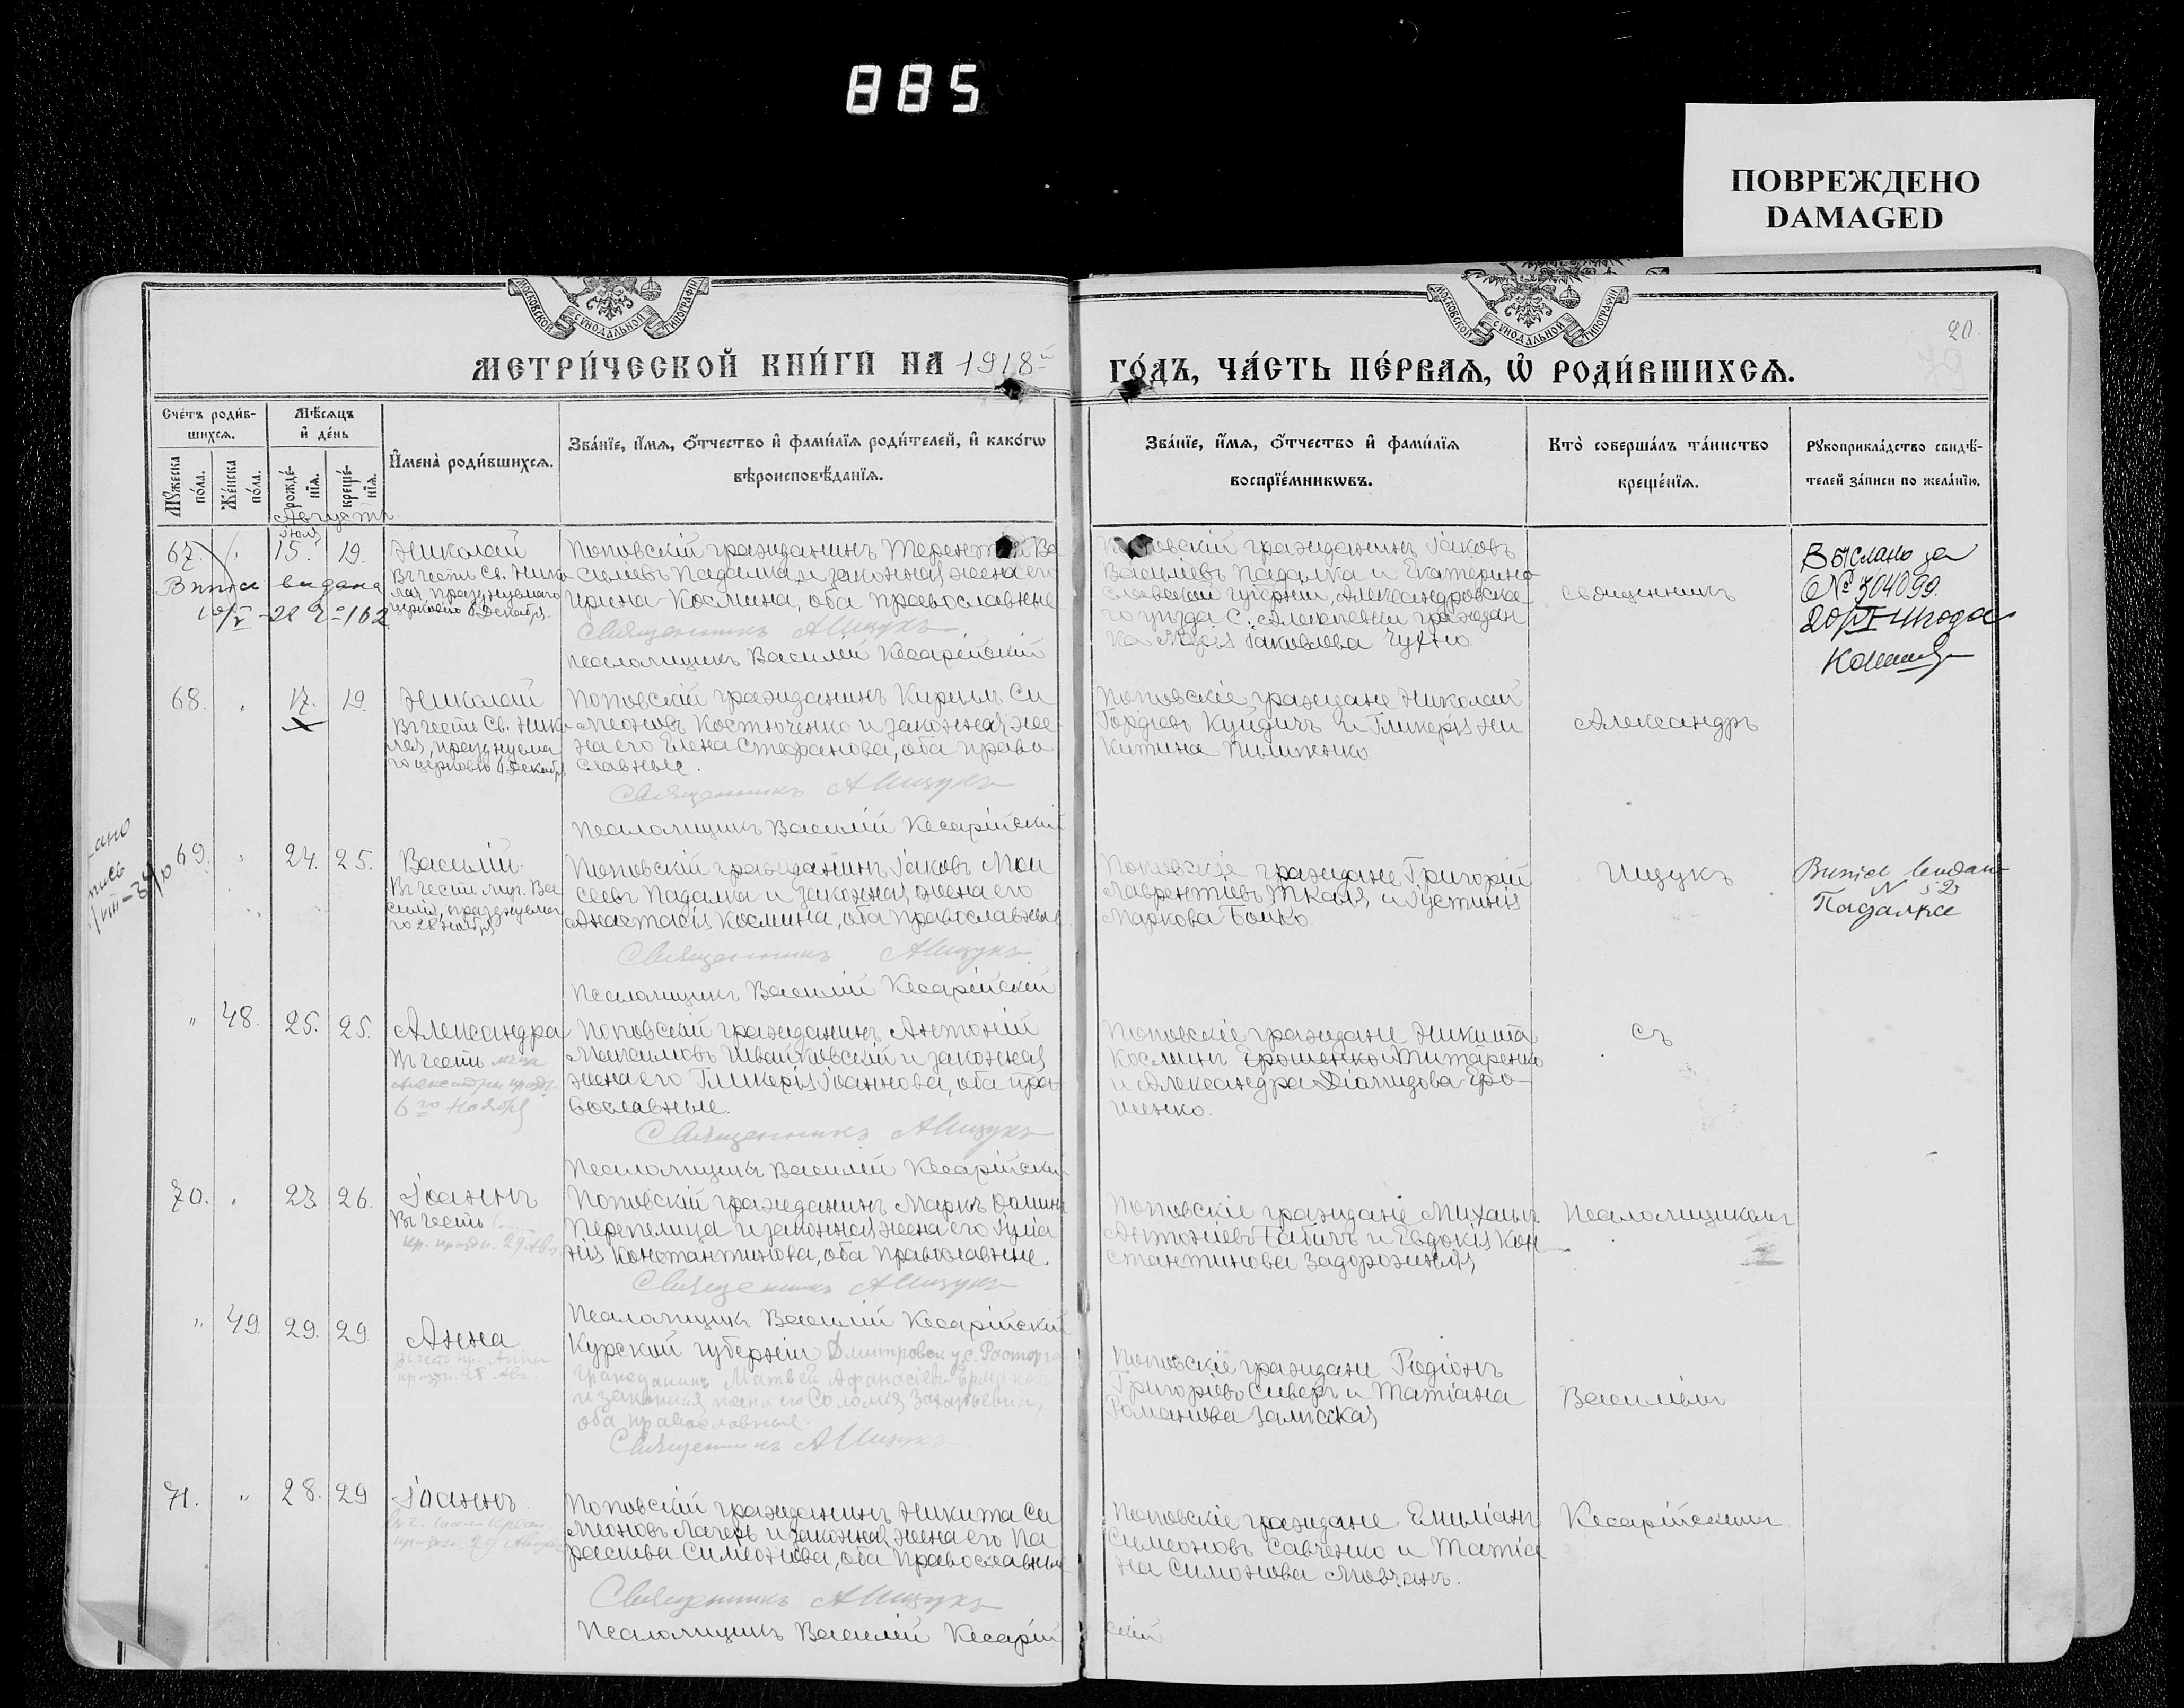 885
ПОВРЕЖДЕНО
DAMAGED
МОСКОВСКОЙ СѴНОДАЛЬНОЙ ТИПОГРАФІИ
МОСКОВСКОЙ СѴНОДАЛЬНОЙ ТИПОГРАФІИ
20.
МЕТРИ́ЧЕСКОЙ КНИ́ГИ НА 1918й
ГО́ДЪ, ЧА́СТЬ ПЕ́РВАѦ, Ѽ РОДИ́ВШИХСѦ.
Сче́тъ роди́в-
шихсѧ.
Мꙋ́жеска по́ла.
Же́нска по́ла.
Мѣ́сѧцъ
и҆ де́нь
рожде́-
нїѧ.
креще́-
нїѧ.
И҆мена̀ роди́вшихсѧ.
Зва́нїе, и҆́мѧ, ѻ҆́тчество и҆ фами́лїѧ роди́телей, и҆ како́гѡ
вѣроисповѣ́данїѧ.
Зва́нїе, и҆́мѧ, ѻ҆́тчество и҆ фами́лїѧ
воспрїе́мникѡвъ.
Кто̀ соверша́лъ та́инство
креще́нїѧ.
Рꙋкоприкла́дство свидѣ́-
телей за́писи по жела́нїю.
Августа
Іюля
67. " 15. 19. Николай
Въ честь Св. Нико
лая, празднуемаго
церковію 6 Декабря.
Поповскій гражданинъ Терентій Ва
силіевъ Падалка и законная жена его
Ирина Космина, оба православные
Священникъ А Ищукъ
Псаломщикъ Василій Кесарійскій
Поповскій гражданинъ Іаковъ
Василіевъ Падалка и Екатерино
славской губерніи, Александровска
го уѣзда С. гражданка
Марія Іаковлева Чухно
священникъ
Выслано за
№ 304099.
68. " 17. 19. Николай
Въ честь Св. Нико
лая, празднуема
го церковію 6 Декабря
Поповскій гражданинъ Кириллъ Си
меоновъ Костюченко и законная же
на его Елена Стефанова, оба право
славные.
Священникъ А Ищукъ
Псаломщикъ Василій Кесарійскій
Поповскіе граждане Николай
Гордіевъ Куйдичъ и Гликерія Ни
китина Пилипенко
Александръ
69. " 24. 25. Василій
Въ честь муч. Ва
силія, празднуемаго
28 ноября
Поповскій гражданинъ Іаковъ Мои
сеевъ Падалка и законная жена его
Анастасія Космина, оба православные
Священникъ А Ищукъ
Псаломщикъ Василій Кесарійскій
Поповскіе граждане Григорій
Лаврентіевъ Ткаля и Іустинія
Маркова Бойко
Ищукъ
Падалка
" 48. 25. 25. Александра
Въ честь
6го Ноября
Поповскій гражданинъ Антоній
Максимовъ Швайковскій и законная
жена его Гликерія Іоаннова, оба пра-
вославные.
Священникъ А Ищукъ
Псаломщикъ Василій Кесарійскій
Поповскіе граждане Никита
Косминъ Грошенко Титаренко
и Александра Діомидова Гро-
шенко.
съ
70. " 23. 26. Іоаннъ
Въ честь
пр. праздн. 29 Авг.
Поповскій гражданинъ Маркъ Ѳоминъ
Перепелица и законная жена его Іуліа
нія Константинова, оба православные.
Священникъ А Ищукъ
Псаломщикъ Василій Кесарійскій
Поповскіе граждане Михаилъ
Антоніевъ Бабичъ и Евдокія Кон
стантинова Задорожняя
Псаломщикомъ
" 49. 29. 29. Анна
Курской губерніи Дмитровск. у. с.
гражданинъ Матвей Афанасіевъ Ермаковъ
и законная жена его Соломія Захарьевна,
оба православные.
Священникъ А Ищукъ
Поповскіе граждане Родіонъ
Григоріевъ Сиверъ и Татіана
Романова Залисская
Василіемъ
71. " 28. 29 Іоаннъ
Поповскій гражданинъ Никита Си
меоновъ Лагеръ и законная жена его Па
раскева Симеонова, оба православные
Священникъ А Ищукъ
Псаломщикъ Василій Кесарійскій
Поповскіе граждане Емиліанъ
Симеоновъ Савченко и Татіа
на Симонова Мовчанъ.
Кесарійскимъ